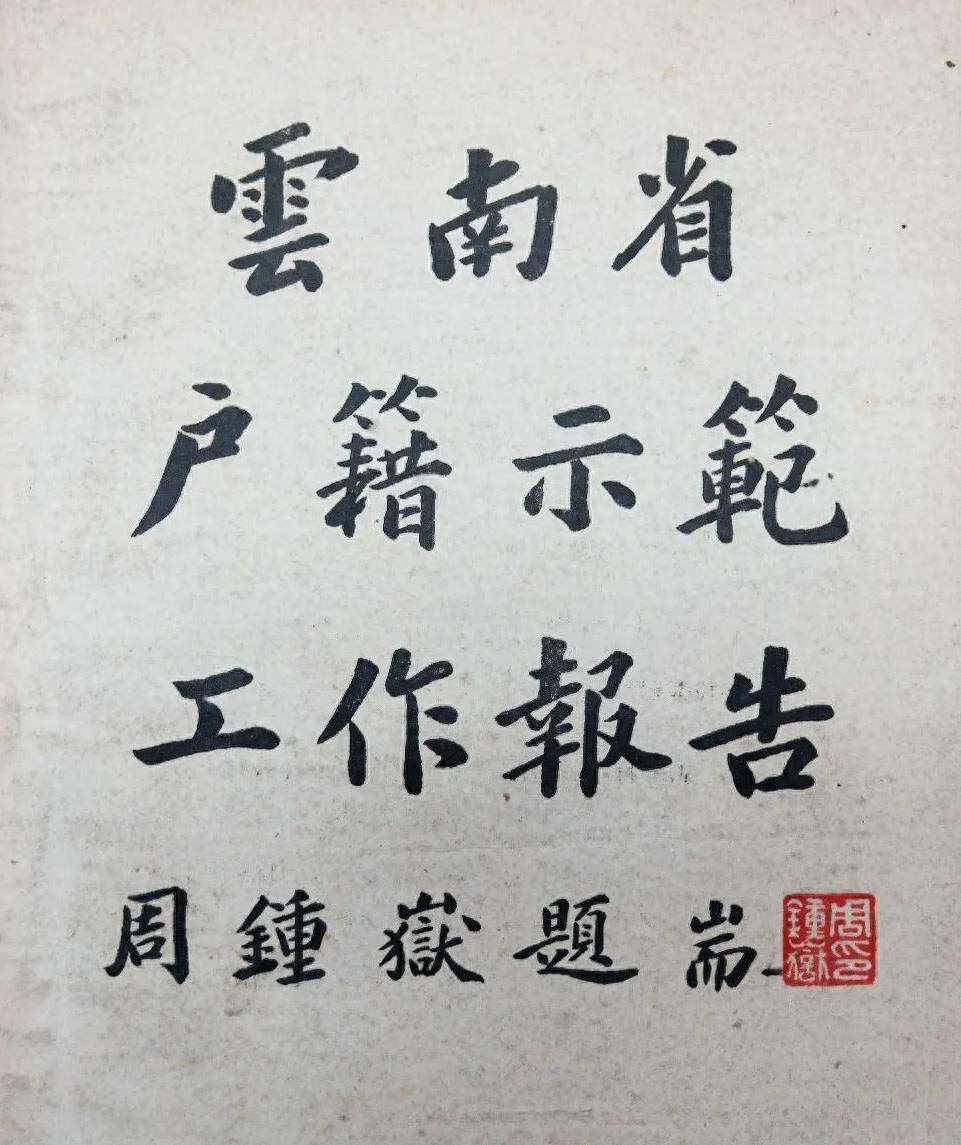 雲南省
户籍示範
工作報告
周鍾嶽題耑
周印
鍾嶽